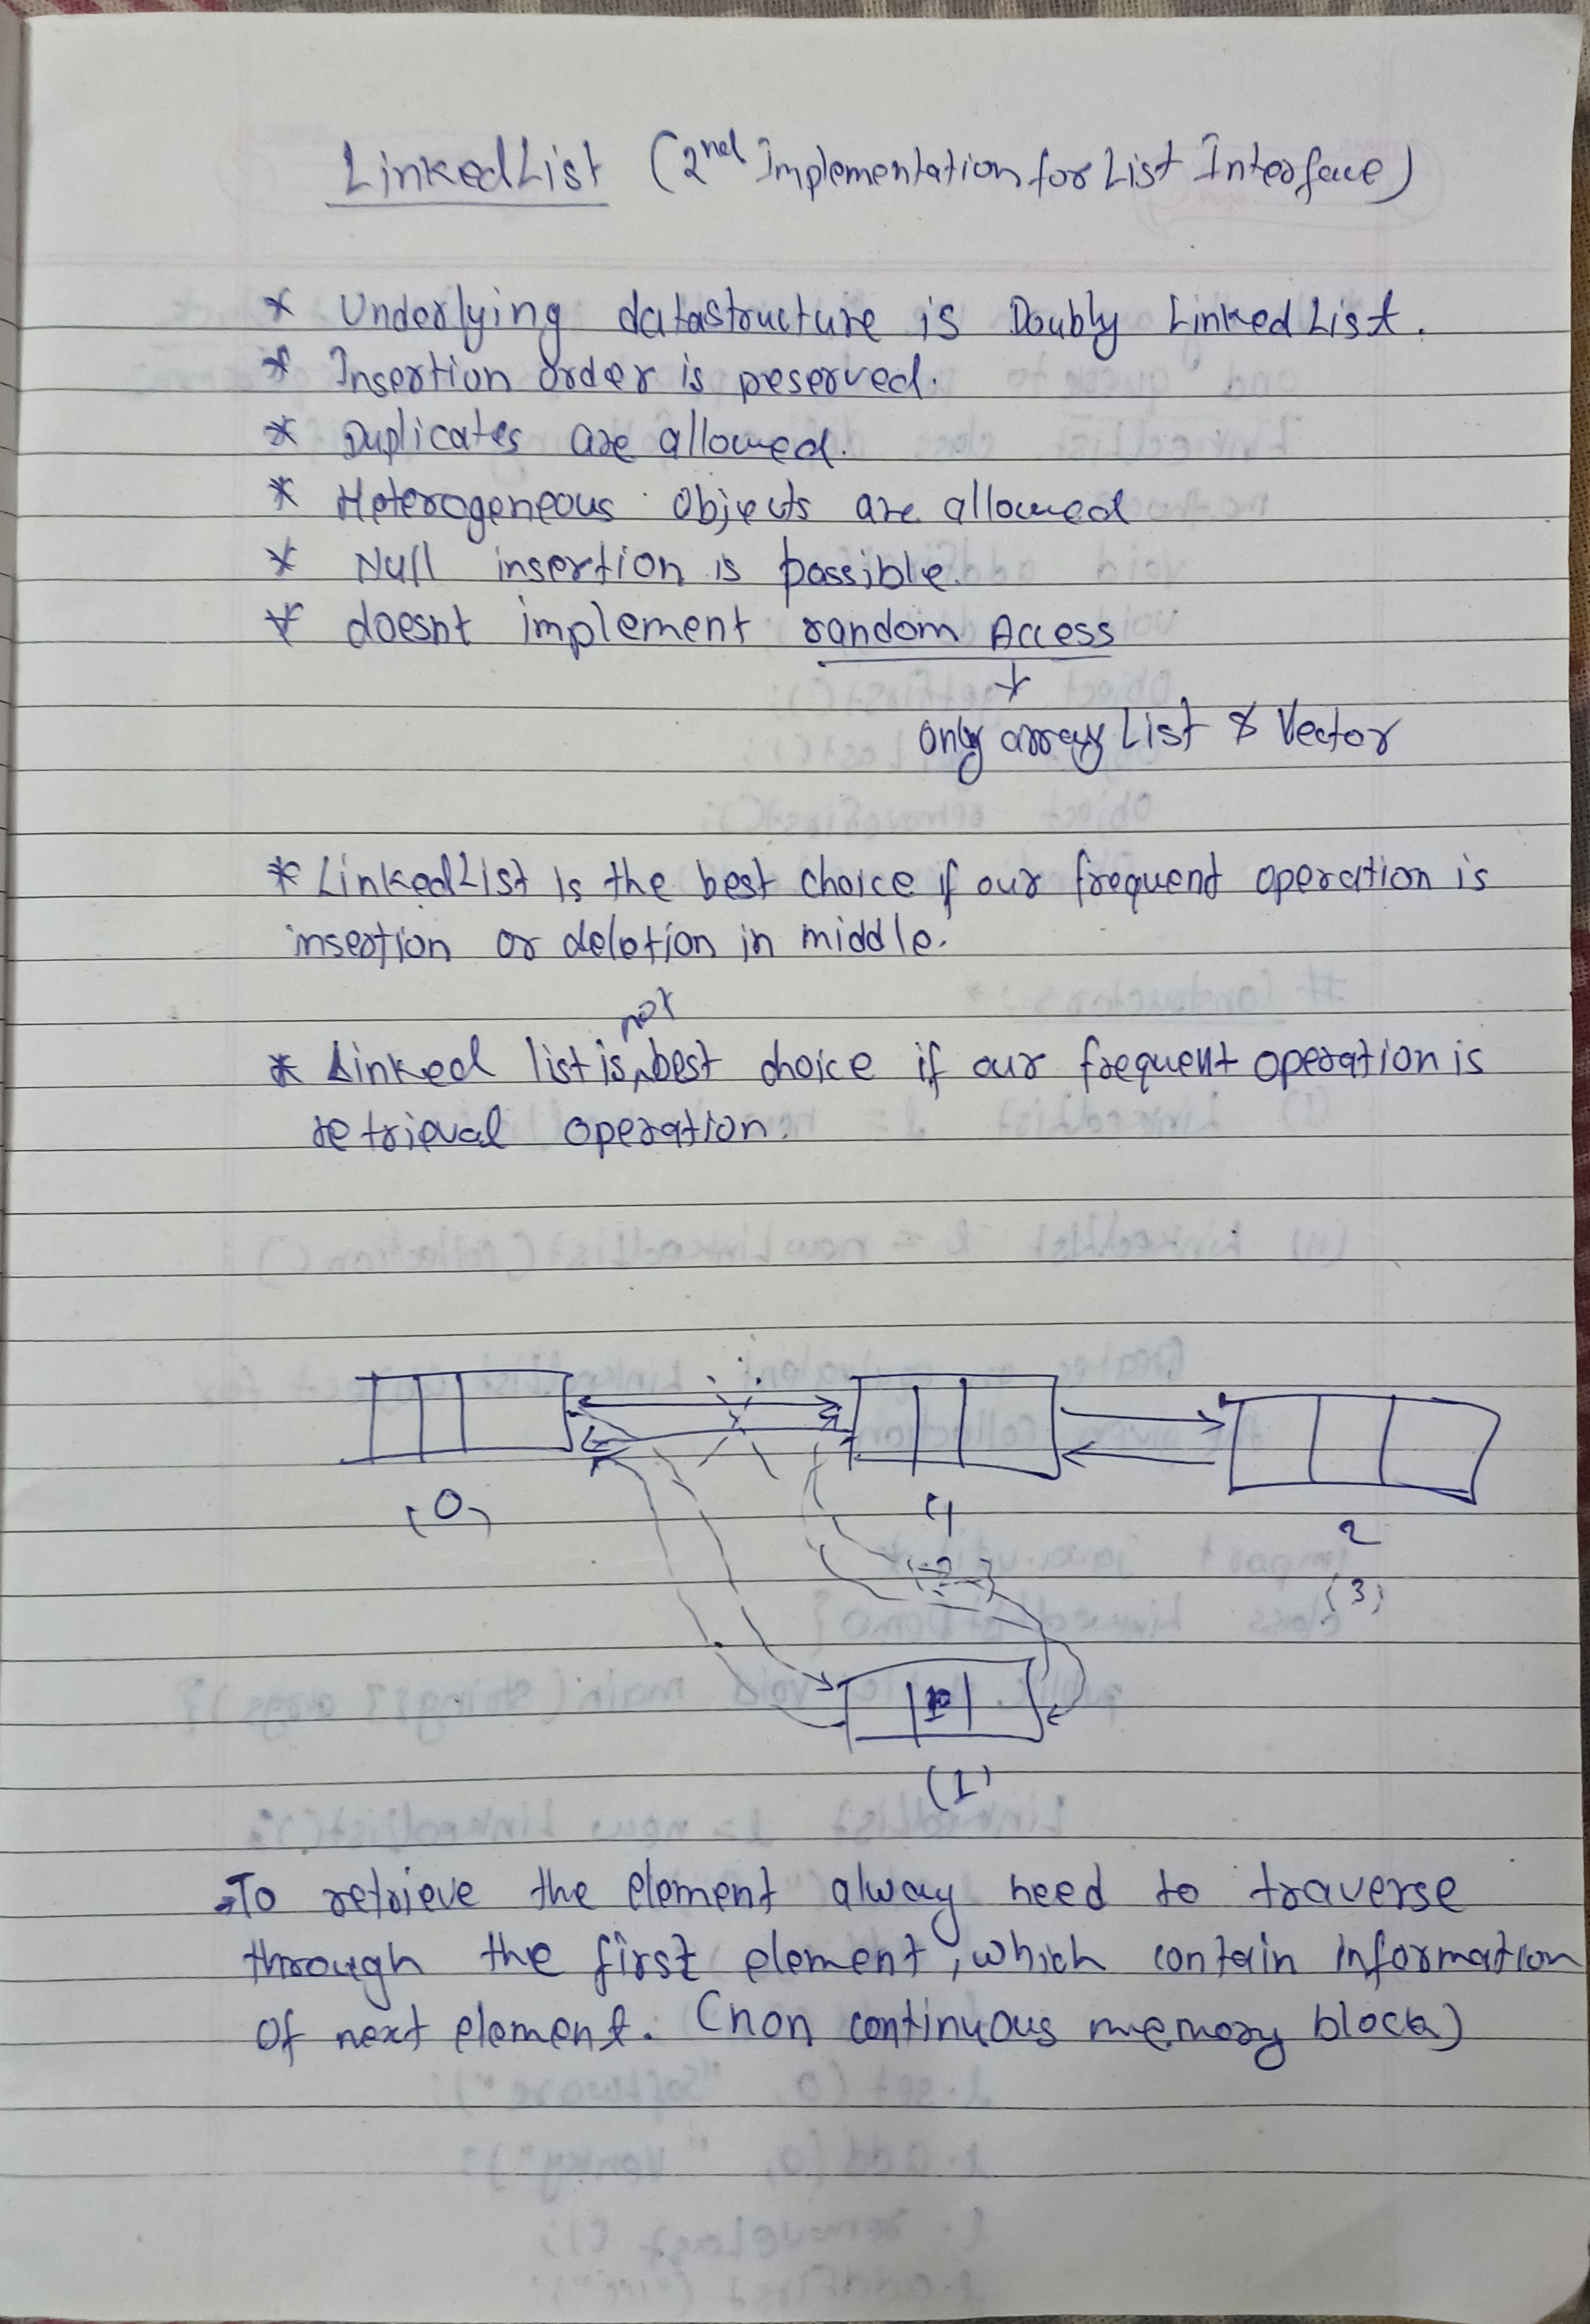 LinkedList (2nd Implementation for List Interface)
* Underlying datastructure is Doubly Linked List.
* Insertion order is preserved.
* Duplicates are allowed.
* Heterogeneous Objects are allowed
* Null insertion is possible.
* doesnt implement random Access
only array List & Vector
* LinkedList is the best choice if our frequent operation is
insertion or deletion in middle.
not
* Linked list is best choice if our frequent operation is
retrieval operation.
(0)
2
(3)
(1)
To retrieve the element alway need to traverse
through the first element, which contain information
of next element. (non continuous memory block)